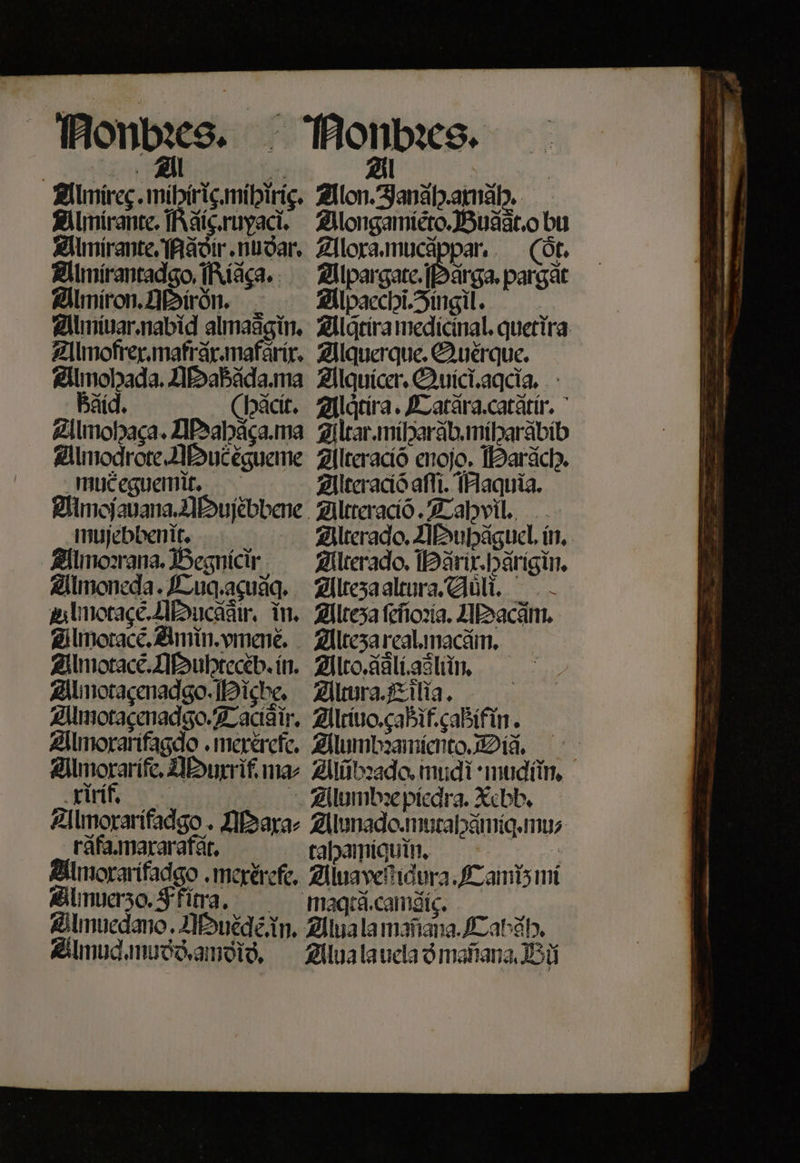 Nonbres.
Al
Almirec. mihiríç. mihiríç.
Almirante. Ráiç. ruyaci.
Almirante. Nádir. nudar.
Almirantadgo. Riáça.
Almiron. Mirón.
Almiuar. nabid almaâgin.
Almofrex. mafráx. mafárix.
Almohada. Mahádda. ma
háid. (hácit.
Almohaça. Mahaça. ma
Almodrote. Mucégueme
muceguemit.
Almojauana. Mujébbene
mujebbenit.
Almorrana. Begnícir
Almoneda. Çuq. açuáq.
Almotacé. Mucááir. in.
Almotacé. Amin. vmené.
Almotacé. Muhtecéb. in.
Almotaçenadgo. Hiçbe.
Almotaçenadgo. Taciáir.
Almoxarifagdo. mexérefe.
Almoxarife. Muxrif. ma-
xirif.
Almoxarifadgo. Maxa-
ráfa. maxarafát.
Almoxarifadgo. mexérefe.
Almuerzo. Fitra.
Almuedano. Muédén. in.
Almud. mudd. amdíd.
Nonbres.
Al
Alon. Janáh. arnáh.
Alongamiéto. Buáát. o bu
Alora. mucáppar. (ôt.
Alpargate. Párga. pargát
Alpacchi. Singil.
Alqtira medicinal. quetira
Alquerque. Quérque.
Alquicer. Quici. aqcia.
Alqtira. Catára. catátir.
Altar. miharáb. miharábib
Alteració enojo. Harách.
Alteració assi. Naquia.
Altteració. Tahvil.
Alterado. Muháguel. in.
Alterado. Hárix. hárigin.
Alteza altura. Aúli.
Alteza señoria. Macám.
Alteza real. macám.
Alto. ááli. aáliin.
Altura. Eilia.
Altiuo. çahif. çahifin.
Alumbramiento. Diá.
Alúbrado. mudi · mudiin.
Alumbre piedra. Xebb.
Alunado. mutahámiq. mu-
tahamiquin.
Alua vestidura. Camiz mi
maqtá. camáiç.
Alua la mañana. Çabáh.
Alua la uela d mañana. Bú